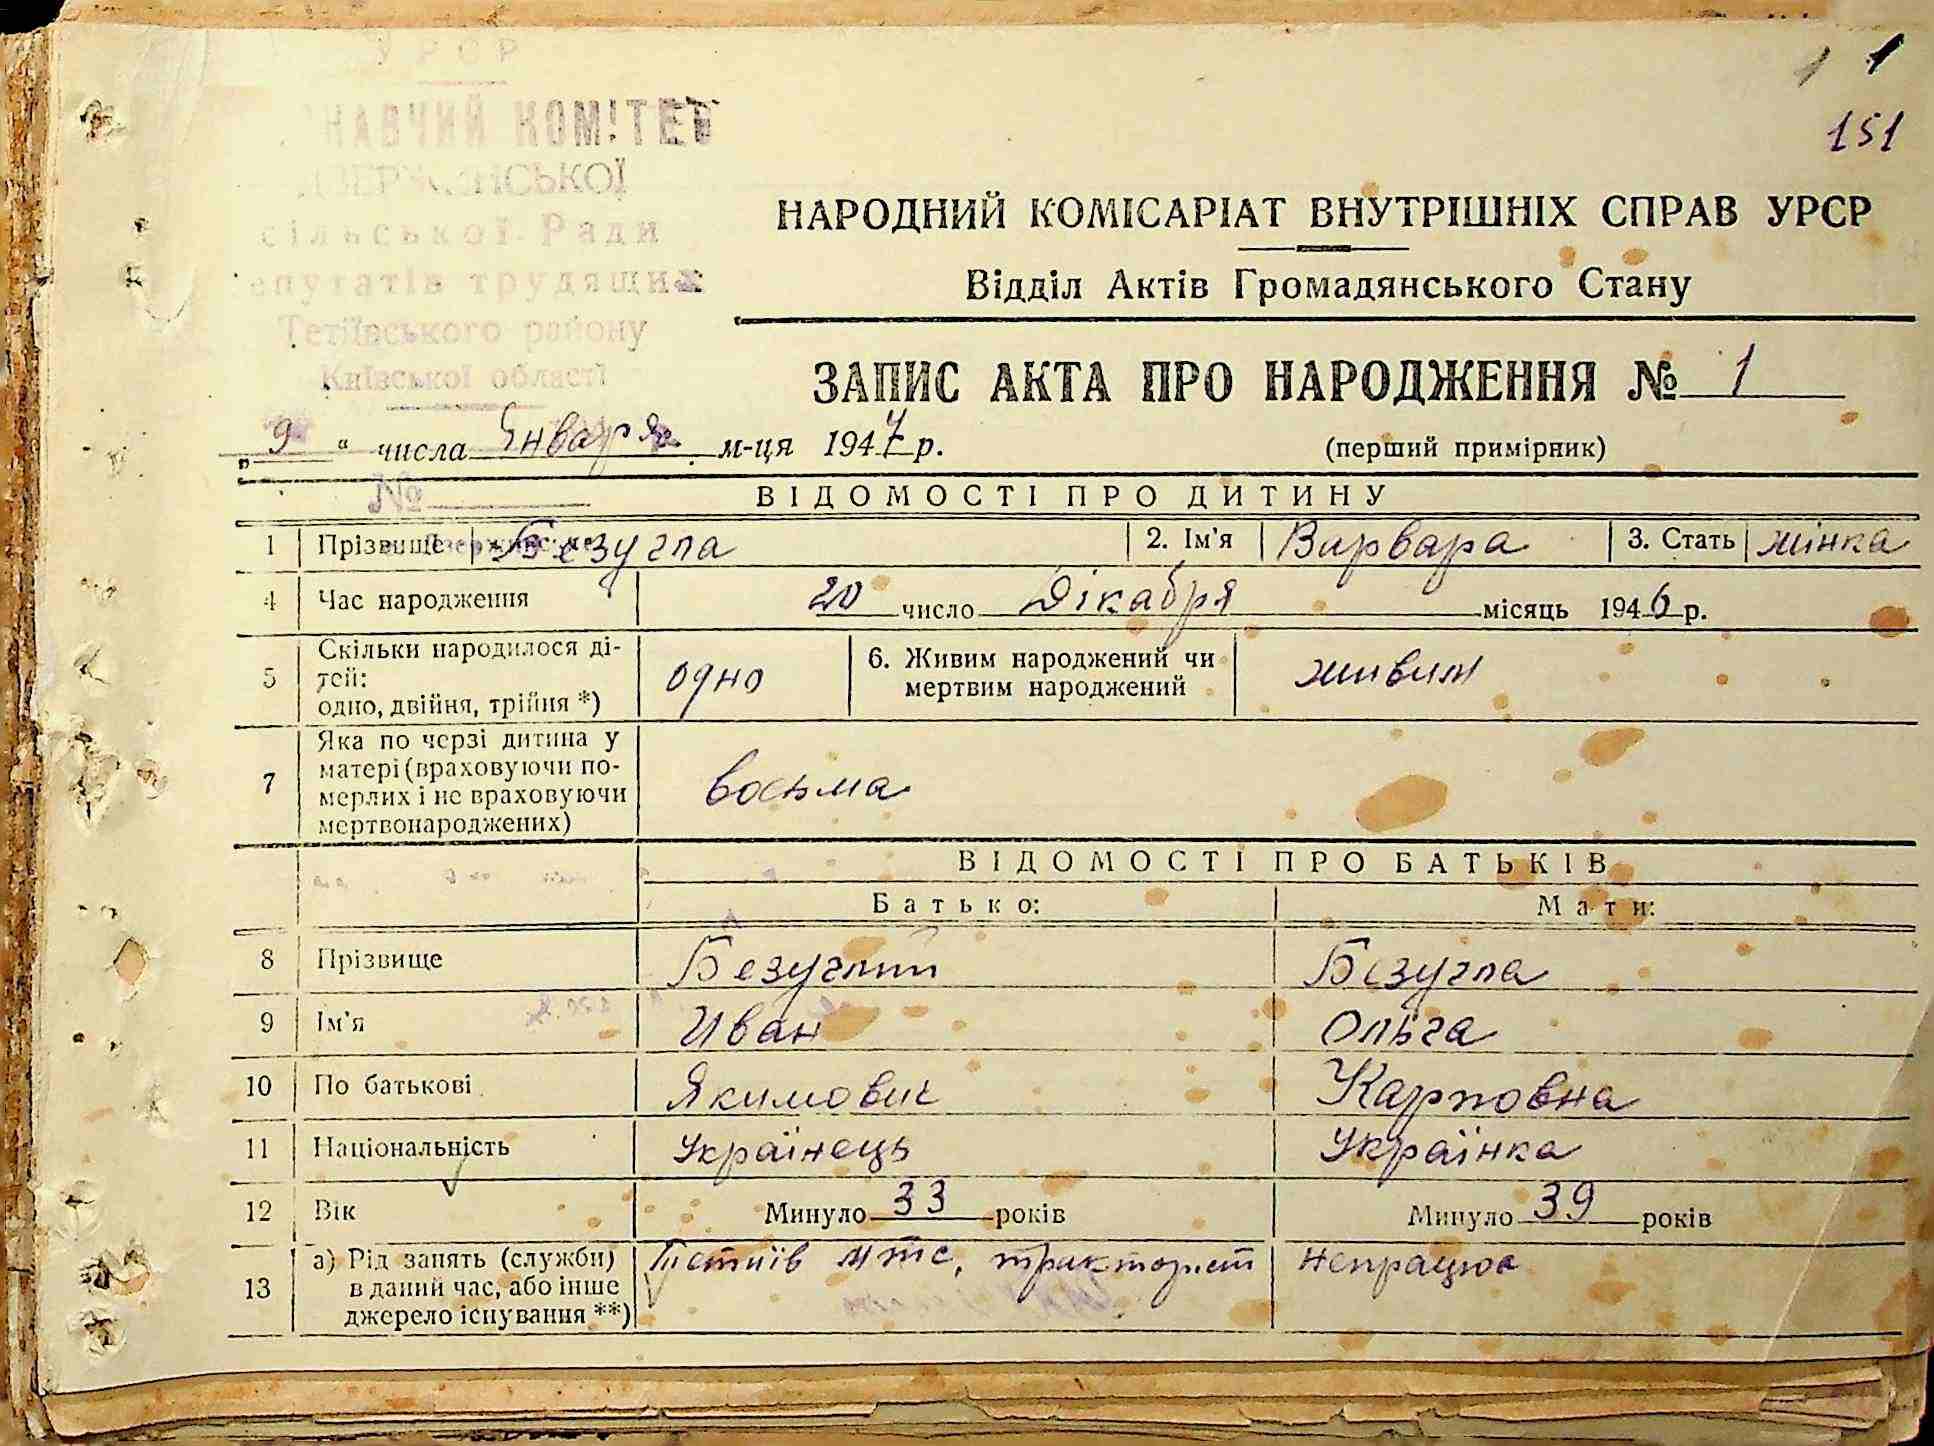 УРСР
1 1
НАВЧИЙ КОМІТЕТ
151
сільської Ради
НАРОДНИЙ КОМІСАРІАТ ВНУТРІШНІХ СПРАВ УРСР
епутатів трудящих
Відділ Актів Громадянського Стану
Тетіївського району
Київської області
ЗАПИС АКТА ПРО НАРОДЖЕННЯ № 1
„ 9 “ числа Января м-ця 1947 р.
(перший примірник)
№
ВІДОМОСТІ ПРО ДИТИНУ
1 Прізвище Безугла 2. Ім'я Варвара 3. Стать жінка
4 Час народження 20 число Дікабря місяць 1946 р.
5 Скільки народилося ді-
тей:
одно, двійня, трійня *)
одно
6. Живим народжений чи
мертвим народжений
живим
7 Яка по черзі дитина у
матері (враховуючи по-
мерлих і не враховуючи
мертвонароджених)
восьма
ВІДОМОСТІ ПРО БАТЬКІВ
Батько: Мати:
8 Прізвище Безуглий Безугла
9 Ім'я Иван Ольга
10 По батькові Якимович Карповна
11 Національність Українець Українка
12 Вік Минуло 33 років Минуло 39 років
13 а) Рід занять (служби)
в даний час, або інше
джерело існування **)
Тетіїв мтс, тракторист
непрацює